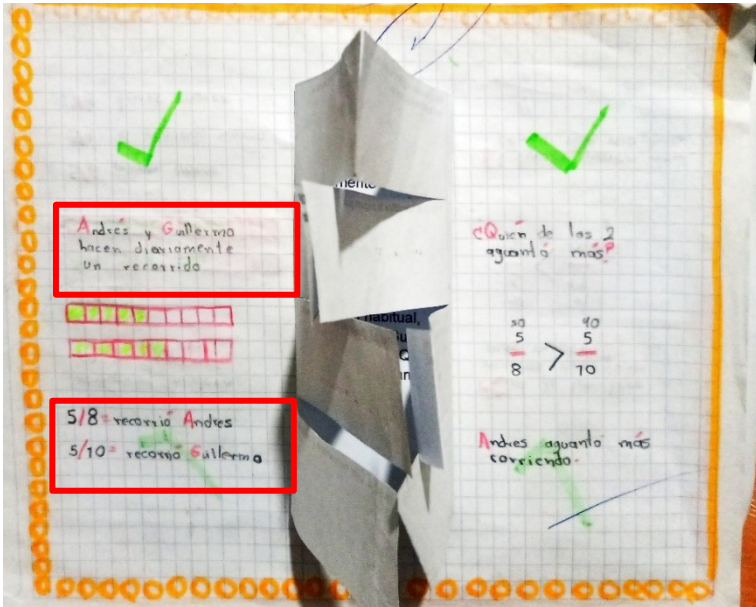 Andrés y Guillermo
hacen diariamente
un recorrido
5/8 = recorrió Andres
5/10 = recorrió Guillermo
mento
habitual,
¿Quién de los 2
aguantó más?
50 40
5 > 5
8 10
Andres aguantó más
corriendo.